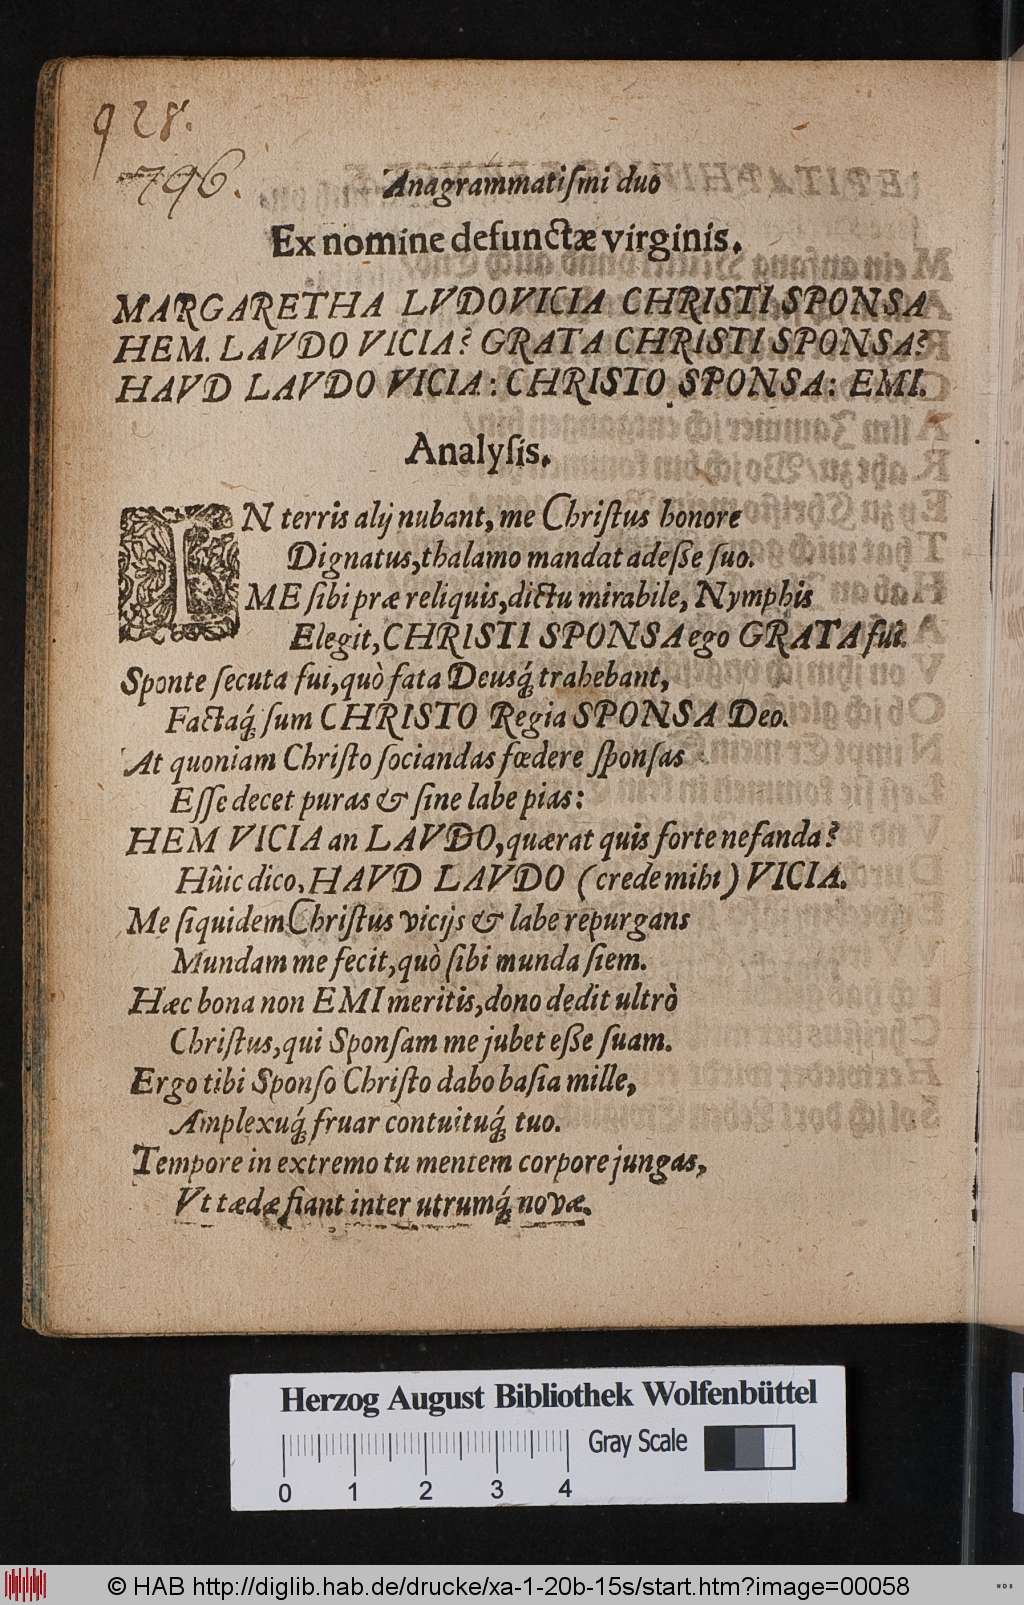 928.
796.
Anagrammatiſmi duo
Ex nomine defunctæ virginis.
MARGARETHA LVDOVICIA CHRISTI SPONSA
HEM. LAVDO VICIA? GRATA CHRISTI SPONSA?
HAVD LAVDO VICIA: CHRISTO SPONSA: EMI.
Analyſis.
IN terris alij nubant, me Chriſtus honore
Dignatus, thalamo mandat adeſſe ſuo.
ME ſibi præ reliquis, dictu mirabile, Nymphis
Elegit, CHRISTI SPONSA ego GRATA fui.
Sponte ſecuta fui, quò fata Deusq́; trahebant,
Factaq́; ſum CHRISTO Regia SPONSA Deo.
At quoniam Chriſto ſociandas fœdere ſponſas
Eſſe decet puras & ſine labe pias:
HEM VICIA an LAVDO, quærat quis forte nefanda?
Hûic dico, HAVD LAVDO (crede mihi) VICIA.
Me ſiquidem Chriſtus vicijs & labe repurgans
Mundam me fecit, quò ſibi munda ſiem.
Hæc bona non EMI meritis, dono dedit ultrò
Chriſtus, qui Sponſam me jubet eſſe ſuam.
Ergo tibi Sponſo Chriſto dabo baſia mille,
Amplexuq́; fruar contuituq́; tuo.
Tempore in extremo tu mentem corpore jungas,
Vt tædæ fiant inter utrumq́; novæ.
Herzog August Bibliothek Wolfenbüttel
Gray Scale
0 1 2 3 4
© HAB http://diglib.hab.de/drucke/xa-1-20b-15s/start.htm?image=00058